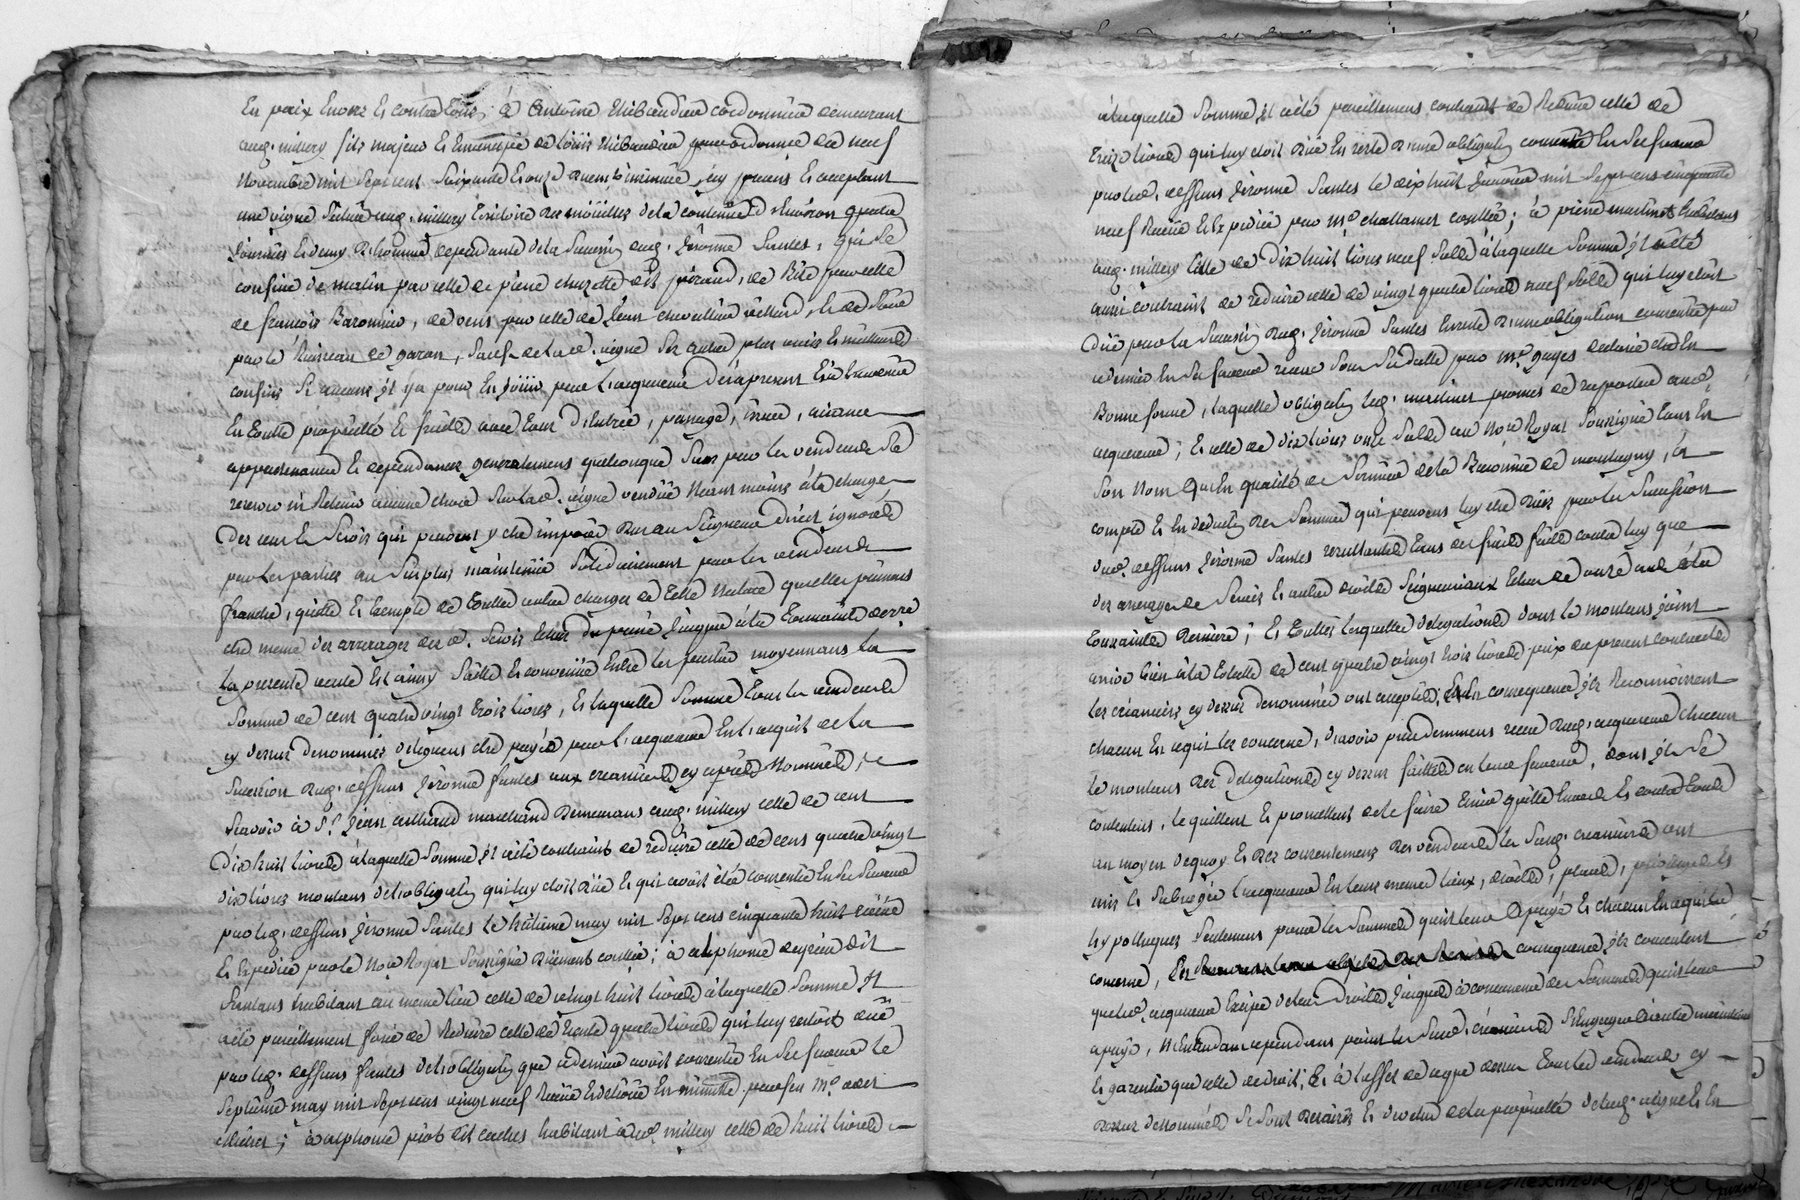 En paix envers et contre tous, à Antoine Thibaudier cordonnier demeurant
aud. millery fils majeur et émancipé de Louis Thibaudier par ordonnance du neuf
Novembre mil sept cent soixante et onze icy présent et acceptant
une vigne située aud. millery territoire des mouilles de la contenue d'environ quatre
journées et demy d'homme dependante de la succession dud. Jérome Fantes, qui se
confine de matin par celle de pierre churette dit jeraud, de bize par celle
de françois Baronnier, de vent par celle de Jean chevallier et de soir
par le Ruisseau de garon, sauf de lad. vigne ses autres plus vrais et meilleurs
confins si aucuns y a pour en jouir par l'acquereur des apresent et a l'avenir
En toutte proprieté et fruits avec tous droits d'entrée, passage, issue, aisance
appartenances et dependances generalement quelconques sans par les vendeurs se
reserver ni retenir aucune chose sur lad. vigne vendüe neanmoins à la charge
des cens et servis qui peuvent y etre imposés dus au Seigneur direct ignorés
par les parties au surplus maintenüe solidairement par les vendeurs
franche, quitte et exempte de touttes autres charges de telle nature quelles puissent
etre meme des arrerages desd. servis et du passé jusques à la Toussaint derre.
la presente vente est ainsy faitte et convenüe entre les parties moyennant la
somme de cent quatre vingt trois livres, et laquelle somme tous les vendeurs
cy dessus denommés deleguent etre payée par l'acquereur en l'acquit de la
succession dud. deffunt jérome fantes aux creanciers cy après nommés,
sçavoir à Sr. jean marchand demeurant aud. millery celle de cent
dix huit livres à laquelle somme il a été contraint de reduire celle de cent quatre vingt
dix livres montant de l'obligation qui luy etoit düe et qui avoit été consentie en sa faveur
par led. deffunt jérome Fantes le huitième may mil sept cent cinquante huit reçüe
et expediée par le Nore Royal soussigné düement conllée; à alphonse dit
habitant au meme lieu celle de vingt huit livres à laquelle somme il
a été pareillement forcé de reduire celle de trente quatre livres qui luy restoit düe
par led. deffunt fantes de l'obligation que ce dernier avoit consentie en sa faveur le
septième may mil sept cent vingt neuf reçüe et delivrée en minutte par feu Me.
; à alphonse piot dit habitant aud. millery celle de huit livres
à laquelle somme il a été pareillement contraint de reduire celle de
treize livres qui luy etoit düe en reste d'une obligation consentie en sa faveur
par led. deffunt jérome Fantes le dix huit janvier mil sept cent cinquante
neuf reçue et expediée par Me. challamet conllée; à pierre martinet habitant
aud. millery celle de dix huit livres neuf sols à laquelle somme il a été
aussi contraint de reduire celle de vingt quatre livres neuf sols qui luy etoit
düe par la succession dud. jérome Fantes ensuite d'une obligation consentie par
ce dernier en sa faveur reçue sous sa datte par Me. gayes declarée etre en
Bonne forme, laquelle obligation led. martinet promet de rapporter aud.
acquereur; et celle de dix livres onze sols au Nore Royal soussigné tant en
son nom qu'en qualité de fermier de la Baronnie de montagny, à
compte et en deduction des sommes qui peuvent luy etre dües par la succession
dud. deffunt jérome Fantes resultantes tant des frais faits contre luy que
des arrerages de servis et autres droits seigneuriaux echus
Toussaints derniere; et touttes lesquelles delegations dont le montant joint
arrive bien à la totalle de cent quatre vingt trois livres prix du present contract
les creanciers cy dessus denommés ont accepté; en consequence ils reconnoissent
chacun en ce qui les concerne, d'avoir presentement reçu dud. acquereur chacun
le montant des delegations cy dessus faittes en leur faveur, dont ils se
contentent, le quittent et promettent de le faire tenir quitte envers et contre tous
au moyen dequoy et du consentement des vendeurs les susd. creanciers ont
mis et subrogé l'acquereur en leurs meme lieux, droits, places, privileges et
hypotheques seulement pour les sommes qu'il leur a payé et chacun en ce qui le
concerne, consequence ils consentent
que led. acquereur excipe de leurs droits jusques à concurrence des sommes qu'il leur
a payé, n'entendant cependant point les susd. creanciers s'engager à autre maintenüe
et garentie que celle de droit; et à l'effet de ce que dessus tous les vendeurs cy
dessus denommés se sont demis et devetus de la proprieté de lad. vigne et en